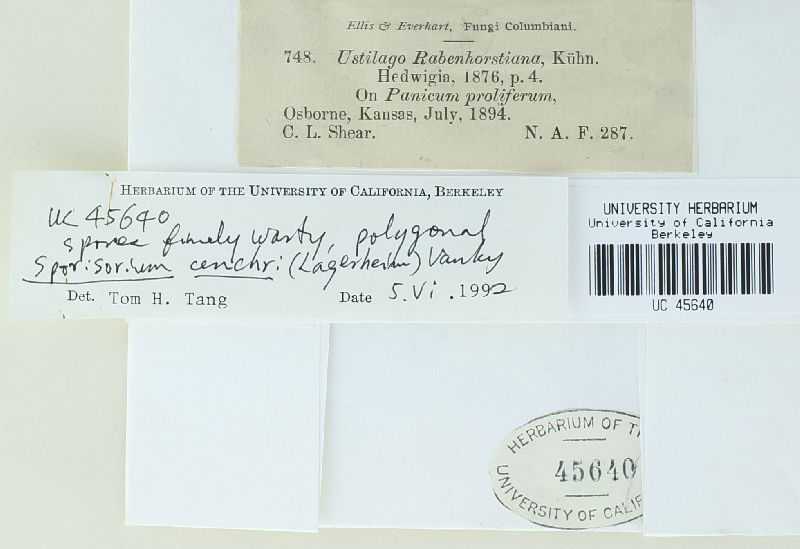 Ellis & Everhart, Fungi Columbiani.
748. Ustilago Rabenhorstiana, Kühn.
Hedwigia, 1876, p. 4.
On Panicum proliferum,
Osborne, Kansas, July, 1894.
C. L. Shear. N. A. F. 287.
Herbarium of the University of California, Berkeley
UC 45640
spores finely warty, polygonal
Sporisorium cenchri (Lagerheim) Vanky
Det. Tom H. Tang Date 5.Vi.1992
UNIVERSITY HERBARIUM
University of California
Berkeley
UC 45640
HERBARIUM OF T
45640
UNIVERSITY OF CALIF